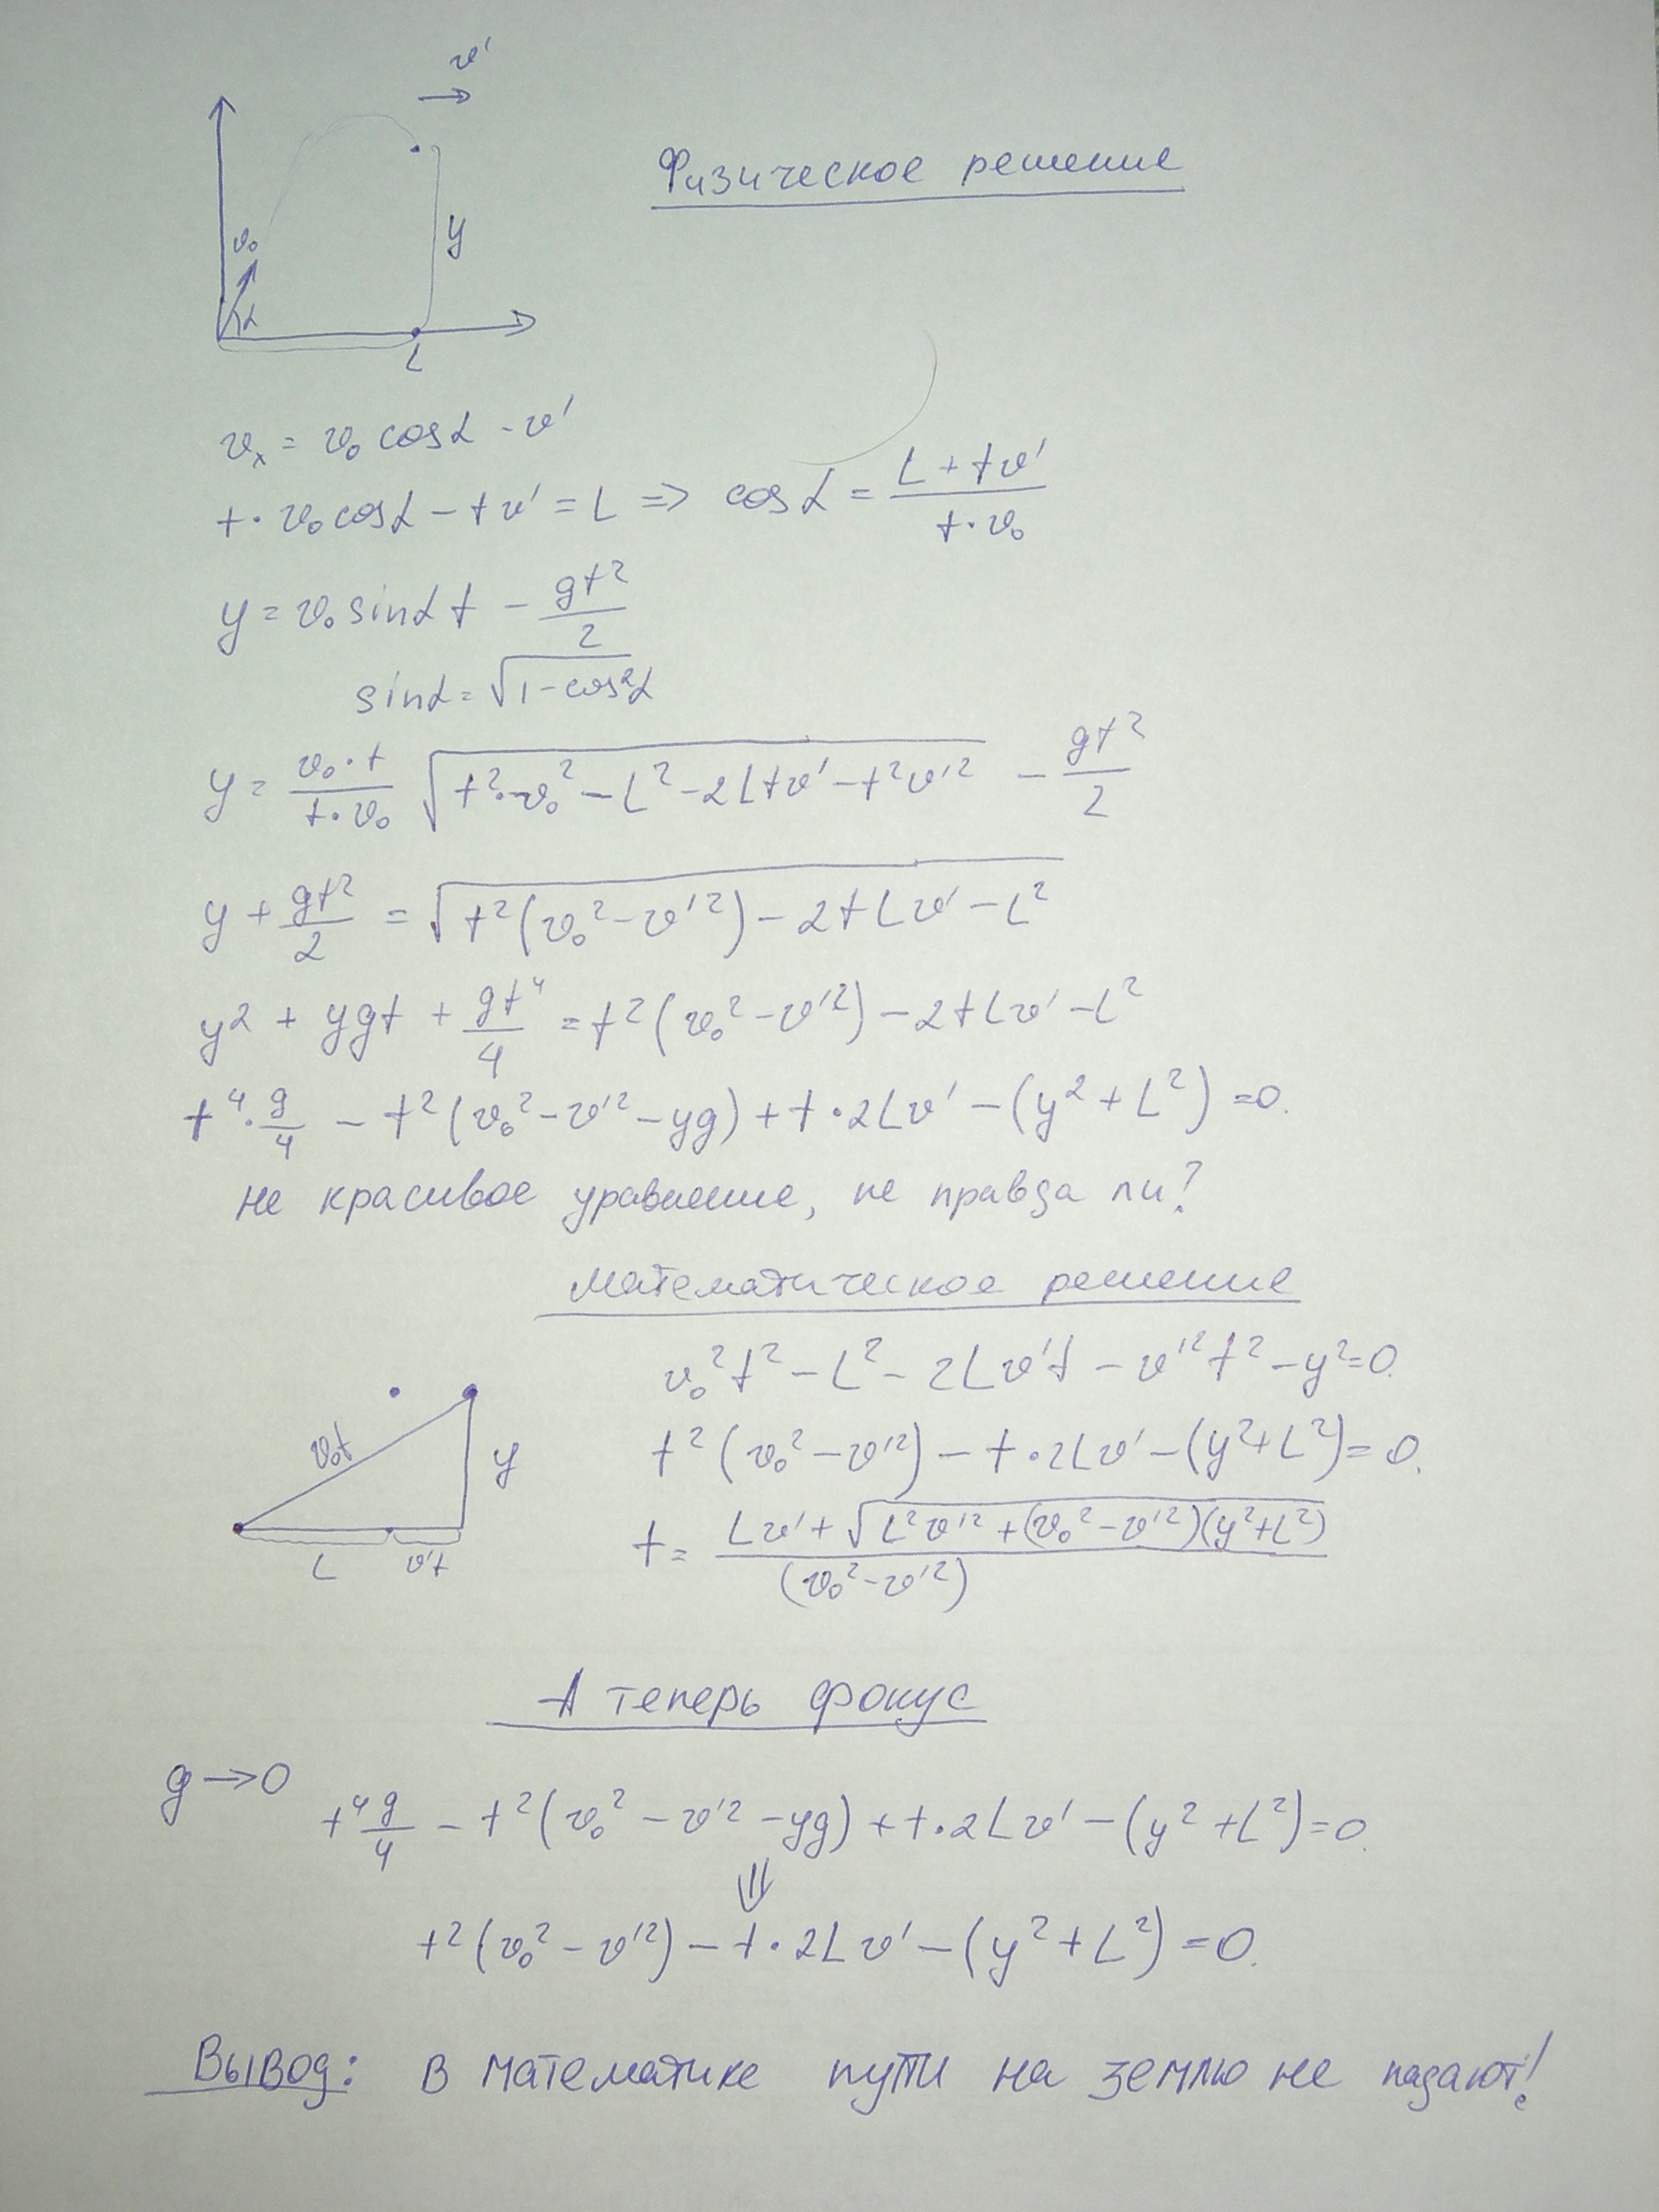 v'
Физическое решение
v₀
y
α
L
vₓ = v₀ cosα - v'
t · v₀ cosα - t v' = L ⇒ cosα = (L + t v') / (t · v₀)
y = v₀ sinα t - gt²/2
sinα = √(1 - cos²α)
y = (v₀ · t)/(t · v₀) √(t² · v₀² - L² - 2Ltv' - t²v'²) - gt²/2
y + gt²/2 = √(t²(v₀² - v'²) - 2tLv' - L²)
y² + ygt + gt⁴/4 = t²(v₀² - v'²) - 2tLv' - L²
t⁴ · g/4 - t²(v₀² - v'² - yg) + t · 2Lv' - (y² + L²) = 0.
не красивое уравнение, не правда ли?
Математическое решение
v₀²t² - L² - 2Lv't - v'²t² - y² = 0.
v₀t
y
L
v't
t²(v₀² - v'²) - t · 2Lv' - (y² + L²) = 0.
t = (Lv' + √(L²v'² + (v₀² - v'²)(y² + L²))) / (v₀² - v'²)
А теперь фокус
g → 0
t⁴ g/4 - t²(v₀² - v'² - yg) + t · 2Lv' - (y² + L²) = 0.
⇓
t²(v₀² - v'²) - t · 2Lv' - (y² + L²) = 0.
Вывод: в математике пули на землю не падают!